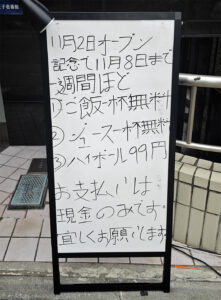 11月2日オープン
記念で11月8日まで
1週間ほど
①ご飯一杯無料
②ジュース一杯無料
③ハイボール99円
お支払いは
現金のみです。
宜しくお願いします